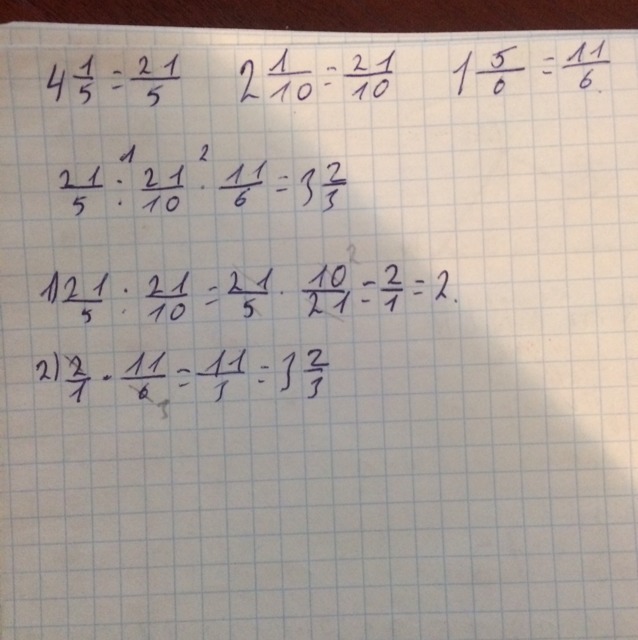 4 1/5 = 21/5 2 1/10 = 21/10 1 5/6 = 11/6.
1 2
21/5 : 21/10 · 11/6 = 3 2/3
1) 21/5 : 21/10 = 21/5 · 10/21 2 = 2/1 = 2.
2) 2/1 · 11/6 3 = 11/3 = 3 2/3